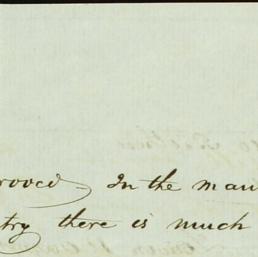 rooved. In the man
try there is much